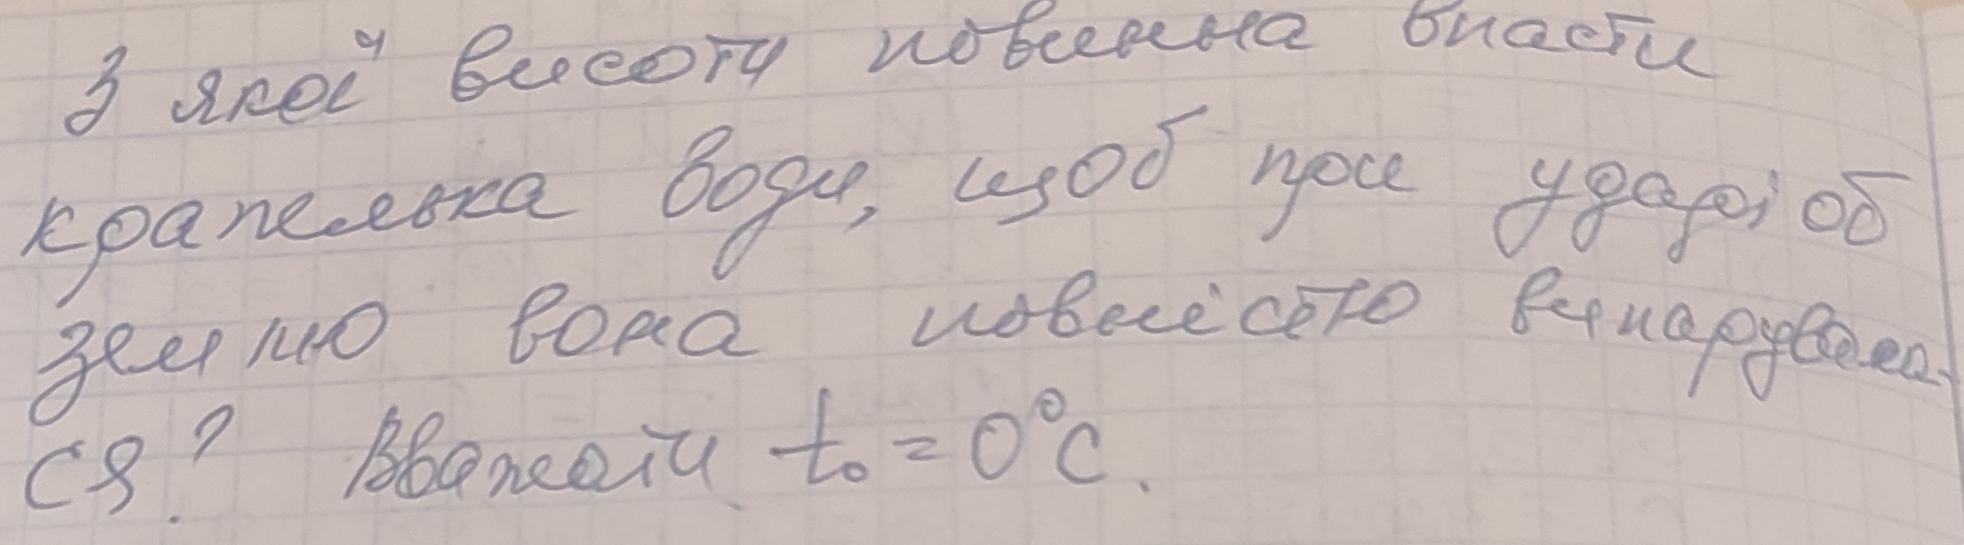 З якої висоти повинна впасти
крапелька води, щоб при ударі об
землю вона повністю випарувала-
ся? Вважати t₀ = 0°C.